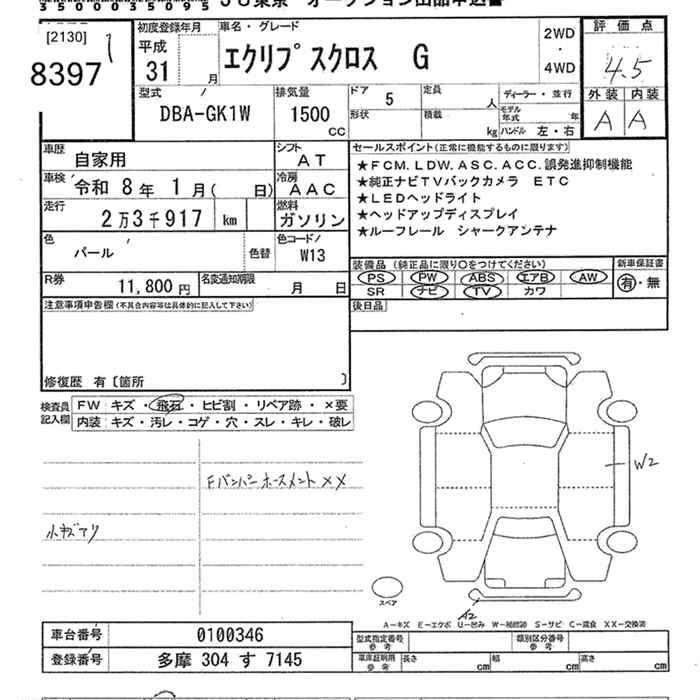 35000035095 JU東京 オークション出品申込書
[2130]
8397
初度登録年月
平成
31 月
車名・グレード
エクリプスクロス G
2WD
・
4WD
評価点
4.5
外装 内装
A A
型式
DBA-GK1W
排気量
1500
CC
ドア 5
形状
定員 人
積載 kg
ディーラー・並行
モデル年式 年
ハンドル 左・右
車歴
自家用
シフト
AT
車検 令和 8年 1月( 日)
冷房
AAC
走行
2万3千917 km
燃料
ガソリン
色
パール
色替
色コード
W13
R券
11,800 円
名変通知期限
月 日
セールスポイント(正常に機能するものに限ります)
★FCM.LDW.ASC.ACC.誤発進抑制機能
★純正ナビTVバックカメラ ETC
★LEDヘッドライト
★ヘッドアップディスプレイ
★ルーフレール シャークアンテナ
装備品(純正品に限り○をつけてください)
PS PW ABS エアB AW
SR ナビ TV カワ
新車保証書
有・無
後日品
注意事項申告欄(不具合内容等は具体的に記入して下さい)
修復歴 有〔箇所 〕
検査員記入欄
FW キズ・飛石・ヒビ割・リペア跡・×要
内装 キズ・汚レ・コゲ・穴・スレ・キレ・破レ
FバンパーホースメントXX
小キズアリ
W2
A2
スペア
A-キズ E-エクボ U-凹み W-補修跡 S-サビ C-腐食 XX-交換済
車台番号 0100346
登録番号 多摩 304 す 7145
型式指定番号
参考
類別区分番号
参考
車庫証明用
参考
長さ cm 幅 cm 高さ cm